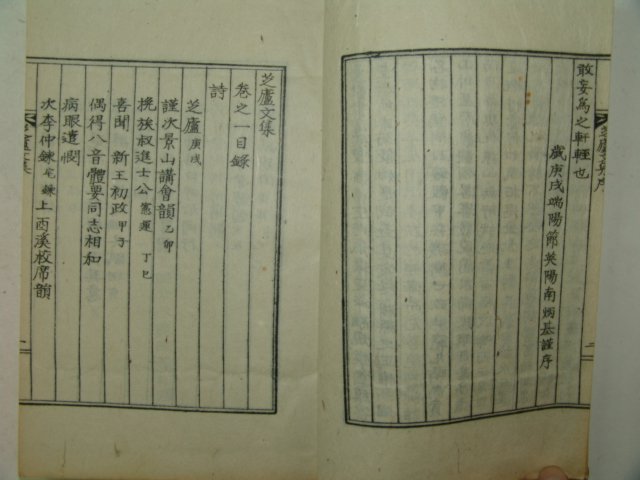 敢妄爲之軒輊也
歲庚戌端陽節英陽南炳基謹序
芝廬文集序
二
芝廬文集
卷之一目錄
詩
芝廬庚戌
謹次景山講會韻乙卯
挽族叔進士公憲運 丁巳
喜聞 新王初政甲子
偶得八音體要同志相和
病眼遣悶
次李仲鍊宅鍊上酉溪校席韻
芝廬文集
一